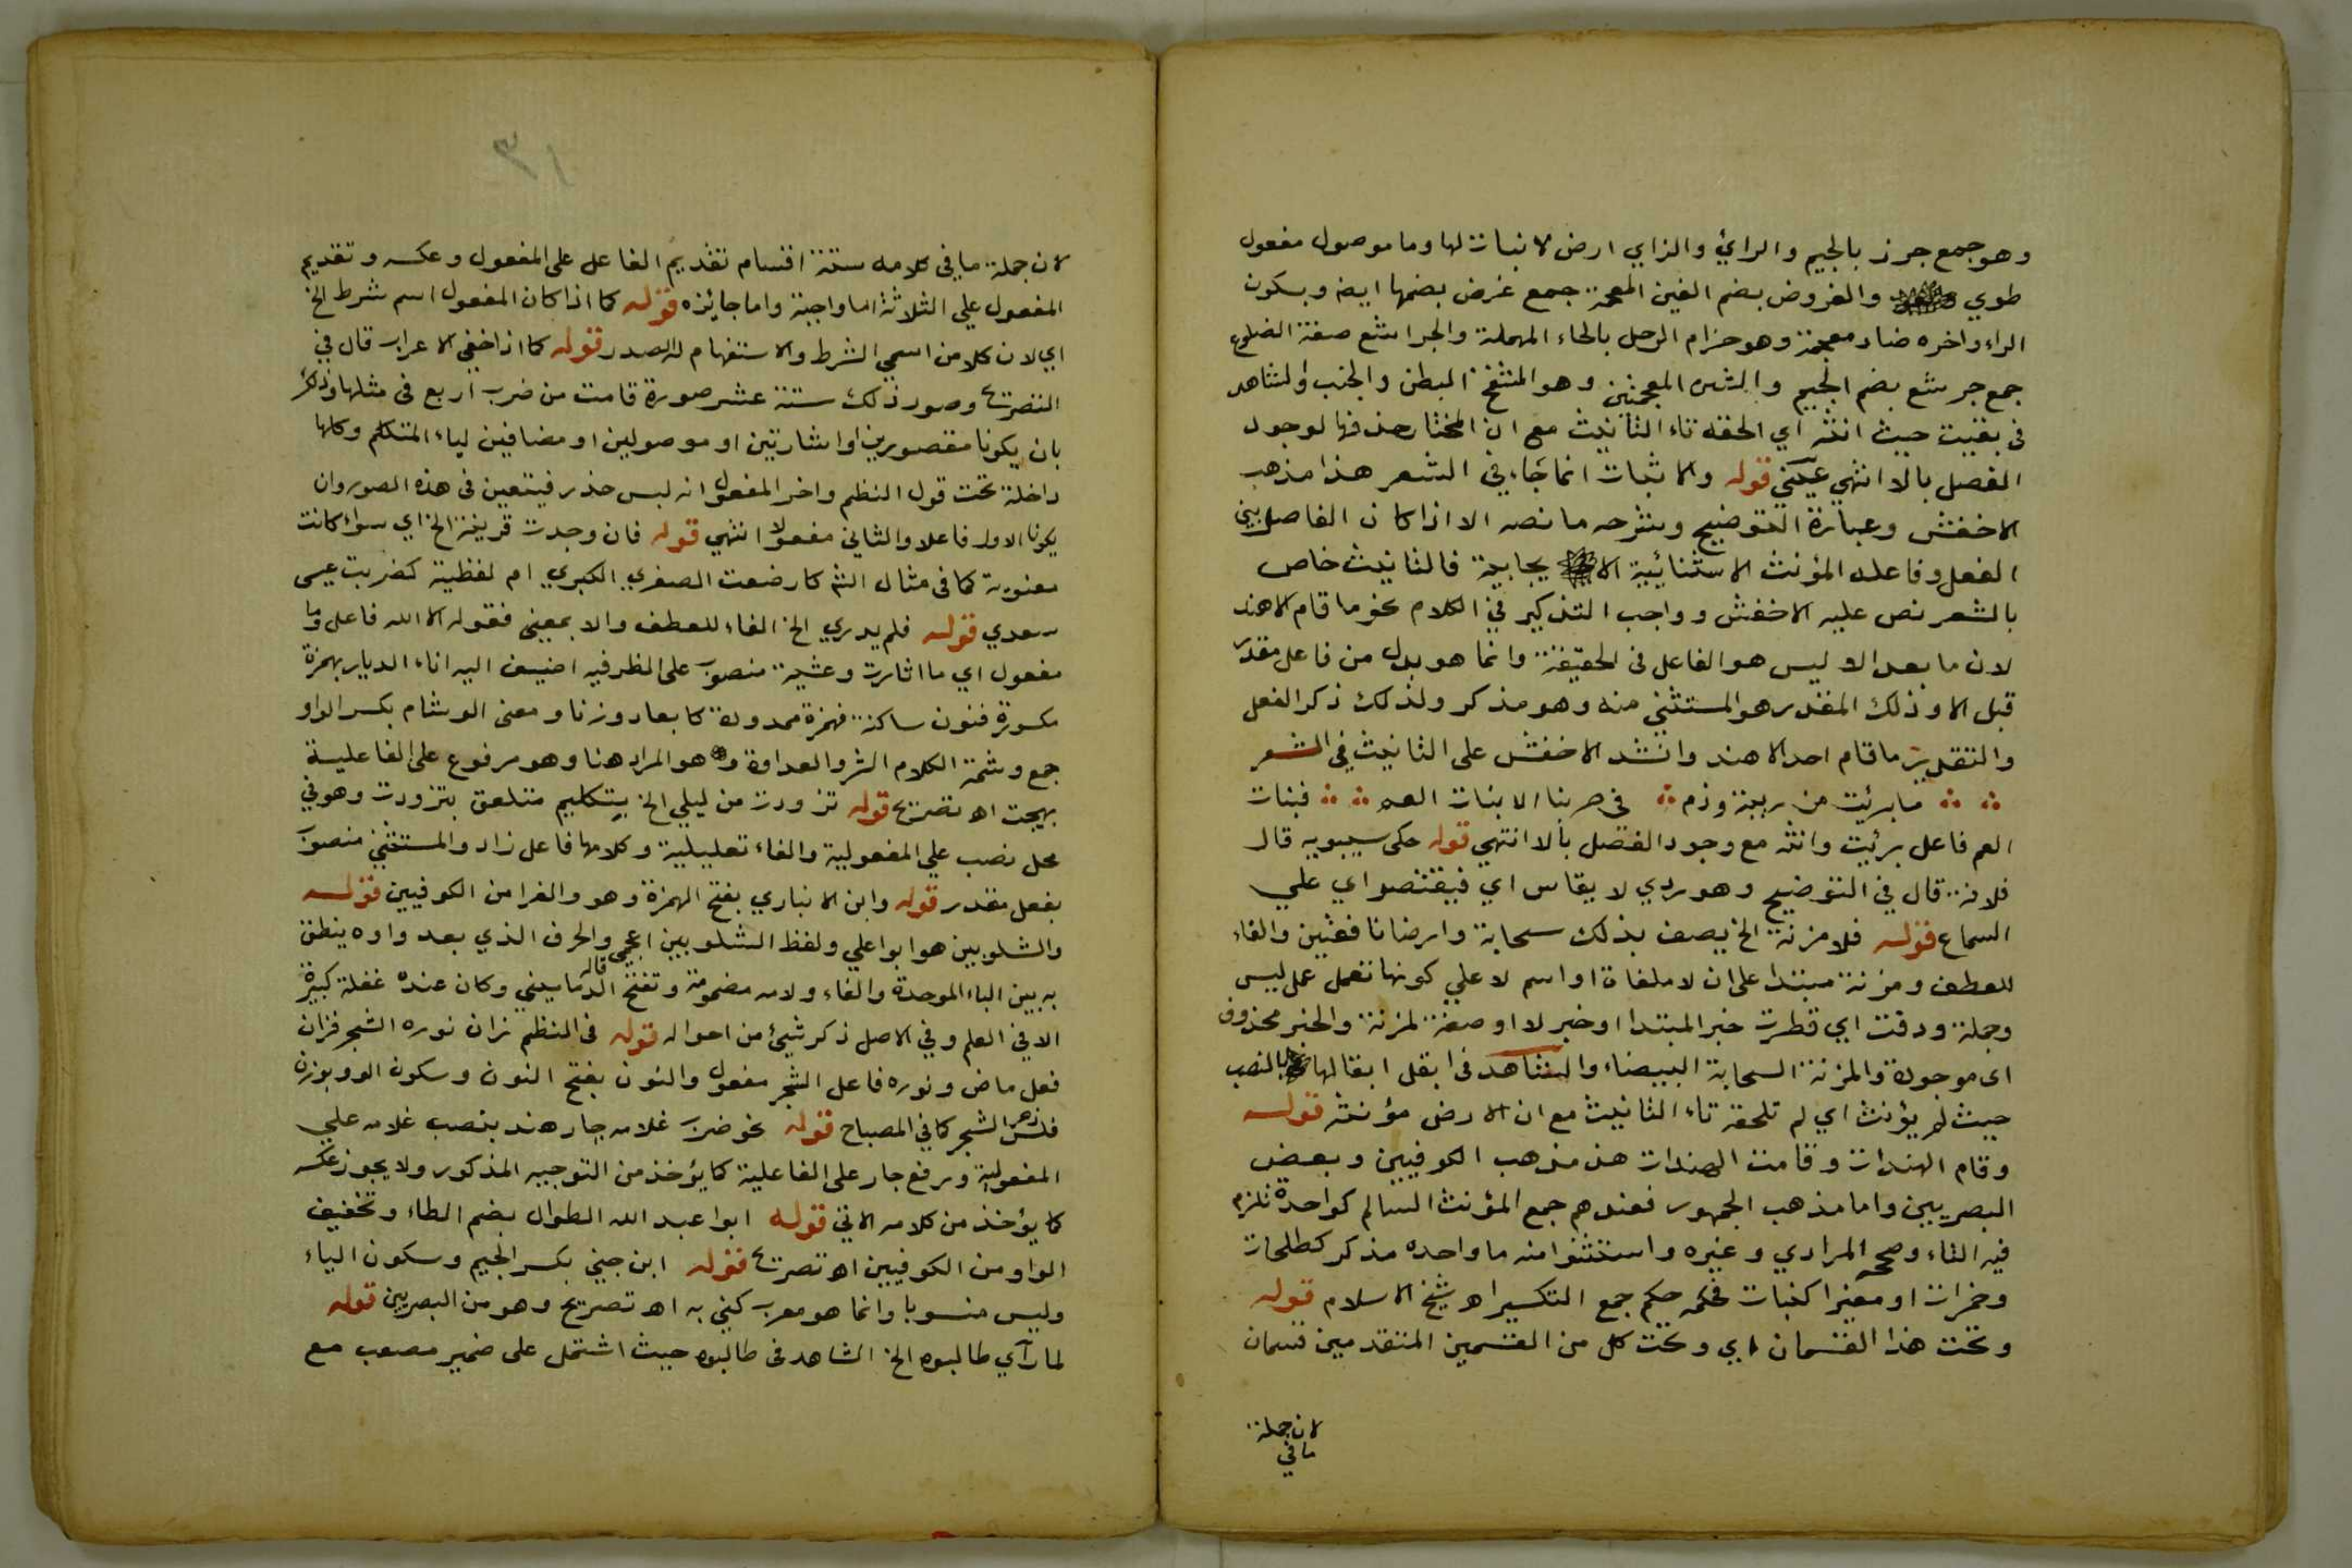 وهو جمع جرز بالجيم والرائ والزاي ارض لا نبات لها وما موصول مفعول
طوي والغروض بضم الغين المعجمة جمع غرض بضمها ايضه وبسكون
الراء واخره ضاد معجمة وهو حزام الرحل بالحاء المهملة والجراشع صفة الضلوع
جمع جرشع بضم الجيم والشين المعجمتين وهو المنتفخ البطن والجنب والشاهد
في بقيت حيث انثه اي الحقه تاء التانيث مع ان المختار حذفها لوجود
الفصل بالا انتهي عيني قوله والاثبات انما جاء في الشعر هذا مذهب
الاخفش وعبارة التوضيح وشرحه ما نصه الا اذا كان الفاصل بين
الفعل وفاعله المؤنث الا استثنائية الا يجابية فالتانيث خاص
بالشعر نص عليه الاخفش وواجب التذكير في الكلام نحو ما قام الا هند
لان ما بعد الا ليس هو الفاعل في الحقيقة وانما هو بدل من فاعل مقدر
قبل الا وذلك المقدر هو المستثني منه وهو مذكر ولذلك ذكر الفعل
والتقدير ما قام احد الا هند وانشد الاخفش على التانيث في الشعر
ما برئت من ريبة وذم في حربنا الا بنات العم فبنات
العم فاعل برئت وانثه مع وجود الفصل بالا انتهي قوله حكى سيبويه قال
فلانة قال في التوضيح وهو ردي لا يقاس اي فيقتصر اي علي
السماع قوله فلا مزنة الخ يصف بذلك سحابة وارضا نافعتين والفاء
للعطف ومزنة مبتدا على ان لا ملغاة او اسم لا علي كونها تعمل عمل ليس
وجملة ودقت اي قطرت خبر المبتدا او خبر لا او صفة لمزنة والخبر محذوف
اى موجودة والمزنة السحابة البيضاء والشاهد في ابقل ابقالها بالنصب
حيث لم يؤنث اي لم تلحقه تاء التانيث مع ان الارض مؤنثه قوله
وقام الهندات وقامت الهندات هذ مذهب الكوفيين وبعض
البصريين واما مذهب الجمهور فعندهم جمع المؤنث السالم كواحدة تلزم
فيه التاء وصححه المرادي وغيره واستثنوا منه ما واحده مذكر كطلحات
وحمزات او مغيرا كبنات فحكمه حكم جمع التكسير اه شيخ الاسلام قوله
وتحت هذا القسمان اي وتحت كل من القسمين المتقدمين قسمان
لان جملة
ما في
١٣
لان جملة ما في كلامه ستة اقسام تقديم الفاعل على المفعول وعكسه وتقديم
المفعول علي الثلاثة اما واجبة واما جايزه قوله كما اذا كان المفعول اسم شرط الخ
اي لان كلا من اسمي الشرط والاستفهام له الصدر قوله كما اذا خفي الاعراب قال في
التصريح وصور ذلك ستة عشر صورة قامت من ضرب اربع في مثلها وذلك
بان يكونا مقصورين او اشارتين او موصولين او مضافين لياء المتكلم وكلها
داخلة تحت قول النظم واخر المفعول انه لبس حذر فيتعين في هذه الصور ان
يكونا الاول فاعلا والثاني مفعولا انتهي قوله فان وجدت قرينة الخ اي سواء كانت
معنوية كما في مثال الشه كارضعت الصغري الكبري ام لفظية كضربت عيسى
سعدي قوله فلم يدري الخ الفاء للعطف والا بمعنى فقوله الا الله فاعل وما
مفعول اي ما اثارت وعشية منصوب على الظرفيه اضيف اليه اناء الديار بهمزة
مكسورة فنون ساكنة فهمزة ممدودة كابعاد وزنا ومعنى الوشام بكسر الواو
جمع وشمة الكلام الشر والعداوة وهو المراد هنا وهو مرفوع على الفاعلية
بهيجت اه تصريح قوله تزودت من ليلي الخ بتكليم متعلق بتزودت وهو في
محل نصب علي المفعولية والفاء تعليلية وكلامها فاعل زاد والمستثني منصوب
بفعل مقدر قوله وابن الانباري بفتح الهمزة وهو والفرا من الكوفيين قوله
والشلوبين هو ابو اعلي ولفظ الشلوبين اعجمي والحرف الذي بعد واوه ينطق
به بين الباء الموحدة والفاء ولامه مضمومة وتفتح قاله الدماميني وكان عنده غفلة كبيرة
الا في العلم وفي الاصل ذكر شيئ من احواله قوله في النظم زان نوره الشجر فزان
فعل ماض ونوره فاعل الشجر مفعول والنون بفتح النون وسكون الوو بوزن
فلس زهر الشجر كما في المصباح قوله نحو ضرب غلامه جار هند بنصب غلامه علي
المفعولية ورفع جار على الفاعلية كما يؤخذ من التوجيه المذكور ولا يجوز عكسه
كما يؤخذ من كلامه الاتي قوله ابوا عبد الله الطوال بضم الطاء وتخفيف
الواو من الكوفيين اه تصريح قوله ابن جني بكسر الجيم وسكون الياء
وليس منسوبا وانما هو معرب كني به اه تصريح وهو من البصريين قوله
لما رآي طالبوه الخ الشاهد في طالبوه حيث اشتمل على ضمير مصعب مع